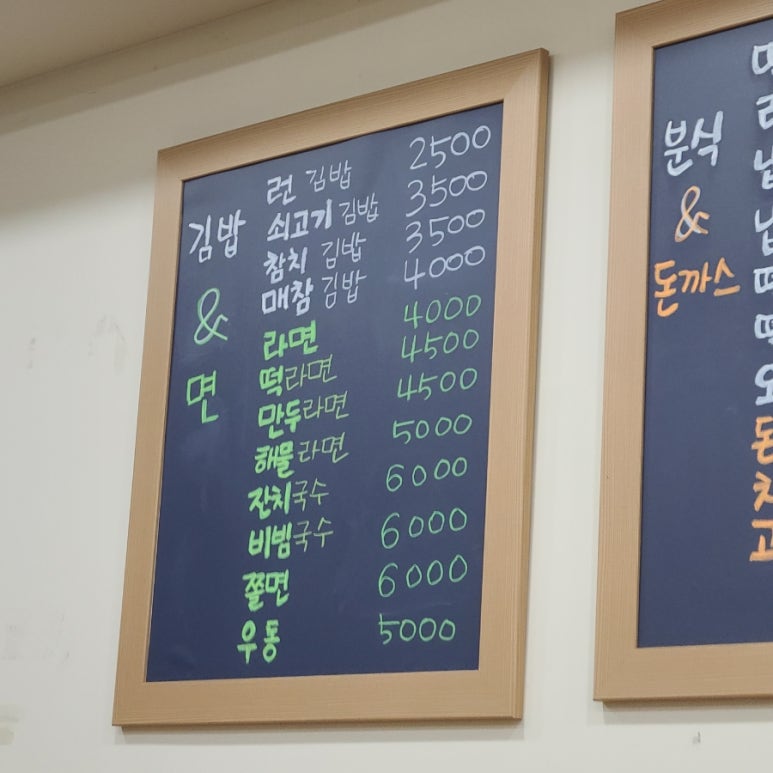 김밥
&
면
런 김밥 2500
쇠고기 김밥 3500
참치 김밥 3500
매참 김밥 4000
라면 4000
떡라면 4500
만두라면 4500
해물라면 5000
잔치국수 6000
비빔국수 6000
쫄면 6000
우동 5000
분식
&
돈까스